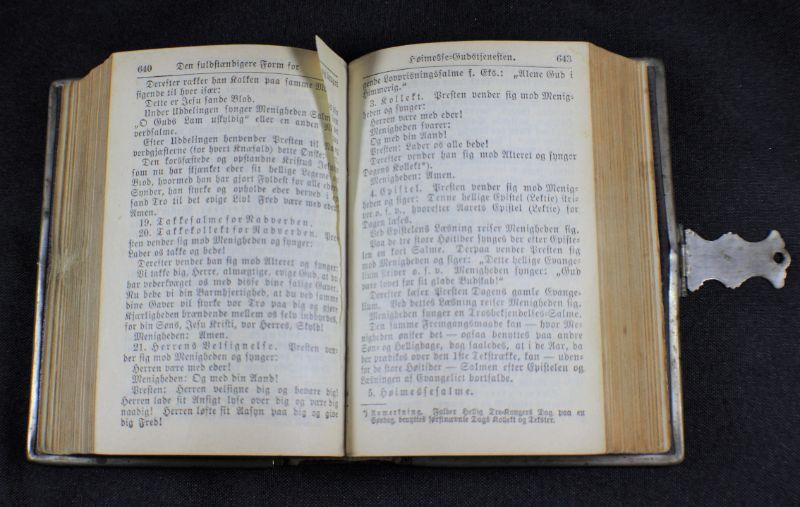 640 Den fuldstændigere Form for
Derefter rækker han Kalken paa samme
sigende til hver især:
Dette er Jesu sande Blod.
Under Uddelingen synger Menigheden Salmen
„O Guds Lam uskyldig“ eller en anden
verdsalme.
Efter Uddelingen henvender Præsten til
verdgjæsterne (for hvert Knæfald) dette Ønske:
Den korsfæstede og opstandne Kristus Jesus,
som nu har skjænket eder sit hellige Legeme og
Blod, hvormed han har gjort Fyldest for alle eders
Synder, han styrke og opholde eder derved i en
sand Tro til det evige Liv! Fred være med eder!
Amen.
19. Takkesalme for Nadverden.
20. Takkekollekt for Nadverden. Præ-
sten vender sig mod Menigheden og synger:
Lader os takke og bede!
Derefter vender han sig mod Alteret og synger:
Vi takke dig, Herre, almægtige, evige Gud, at du
har vederkvæget os med disse dine salige Gaver.
Nu bede vi din Barmhjertighed, at du ved samme
dine Gaver vil styrke vor Tro paa dig og gjøre
Kjærligheden brændende mellem os selv indbyrdes,
for din Søns, Jesu Kristi, vor Herres, Skyld!
Menigheden: Amen.
21. Herrens Velsignelse. Præsten ven-
der sig mod Menigheden og synger:
Herren være med eder!
Menigheden: Og med din Aand!
Præsten: Herren velsigne dig og bevare dig!
Herren lade sit Ansigt lyse over dig og være dig
naadig! Herren løfte sit Aasyn paa dig og give
dig Fred!
Høimesse-Gudstjenesten. 643
gende Lovprisningssalme f. Eks.: „Alene Gud i
Himmerig.“
3. Kollekt. Præsten vender sig mod Menig-
heden og synger:
Herren være med eder!
Menigheden svarer:
Og med din Aand!
Præsten: Lader os alle bede!
Derefter vender han sig mod Alteret og synger
Dagens Kollekt*).
Menigheden: Amen.
4. Epistel. Præsten vender sig mod Menig-
heden og siger: Denne hellige Epistel (Lektie) skri-
ver o. s. v., hvorefter Aarets Epistel (Lektie) for
Dagen læses.
Ved Epistelens Læsning reiser Menigheden sig.
Paa de tre store Høitider synges der efter Episte-
len en kort Salme. Derpaa vender Præsten sig
mod Menigheden og siger: „Dette hellige Evange-
lium skriver o. s. v. Menigheden synger: „Gud
være lovet for sit glade Budskab!“
Derefter læser Præsten Dagens gamle Evange-
lium. Ved dettes Læsning reiser Menigheden sig.
Menigheden synger en Trosbekjendelses-Salme.
Den samme Fremgangsmaade kan — hvor Me-
nigheden ønsker det — ogsaa benyttes paa andre
Søn- og Helligdage, dog saaledes, at i de Aar, da
der prædikes over den 1ste Tekstrække, kan — uden-
for de store Høitider — Salmen efter Epistelen og
Læsningen af Evangeliet bortfalde.
5. Høimessesalme.
*) Anmerkning. Falder Hellig Tre-Kongers Dag paa en
Søndag, benyttes førstnævnte Dags Kollekt og Tekster.